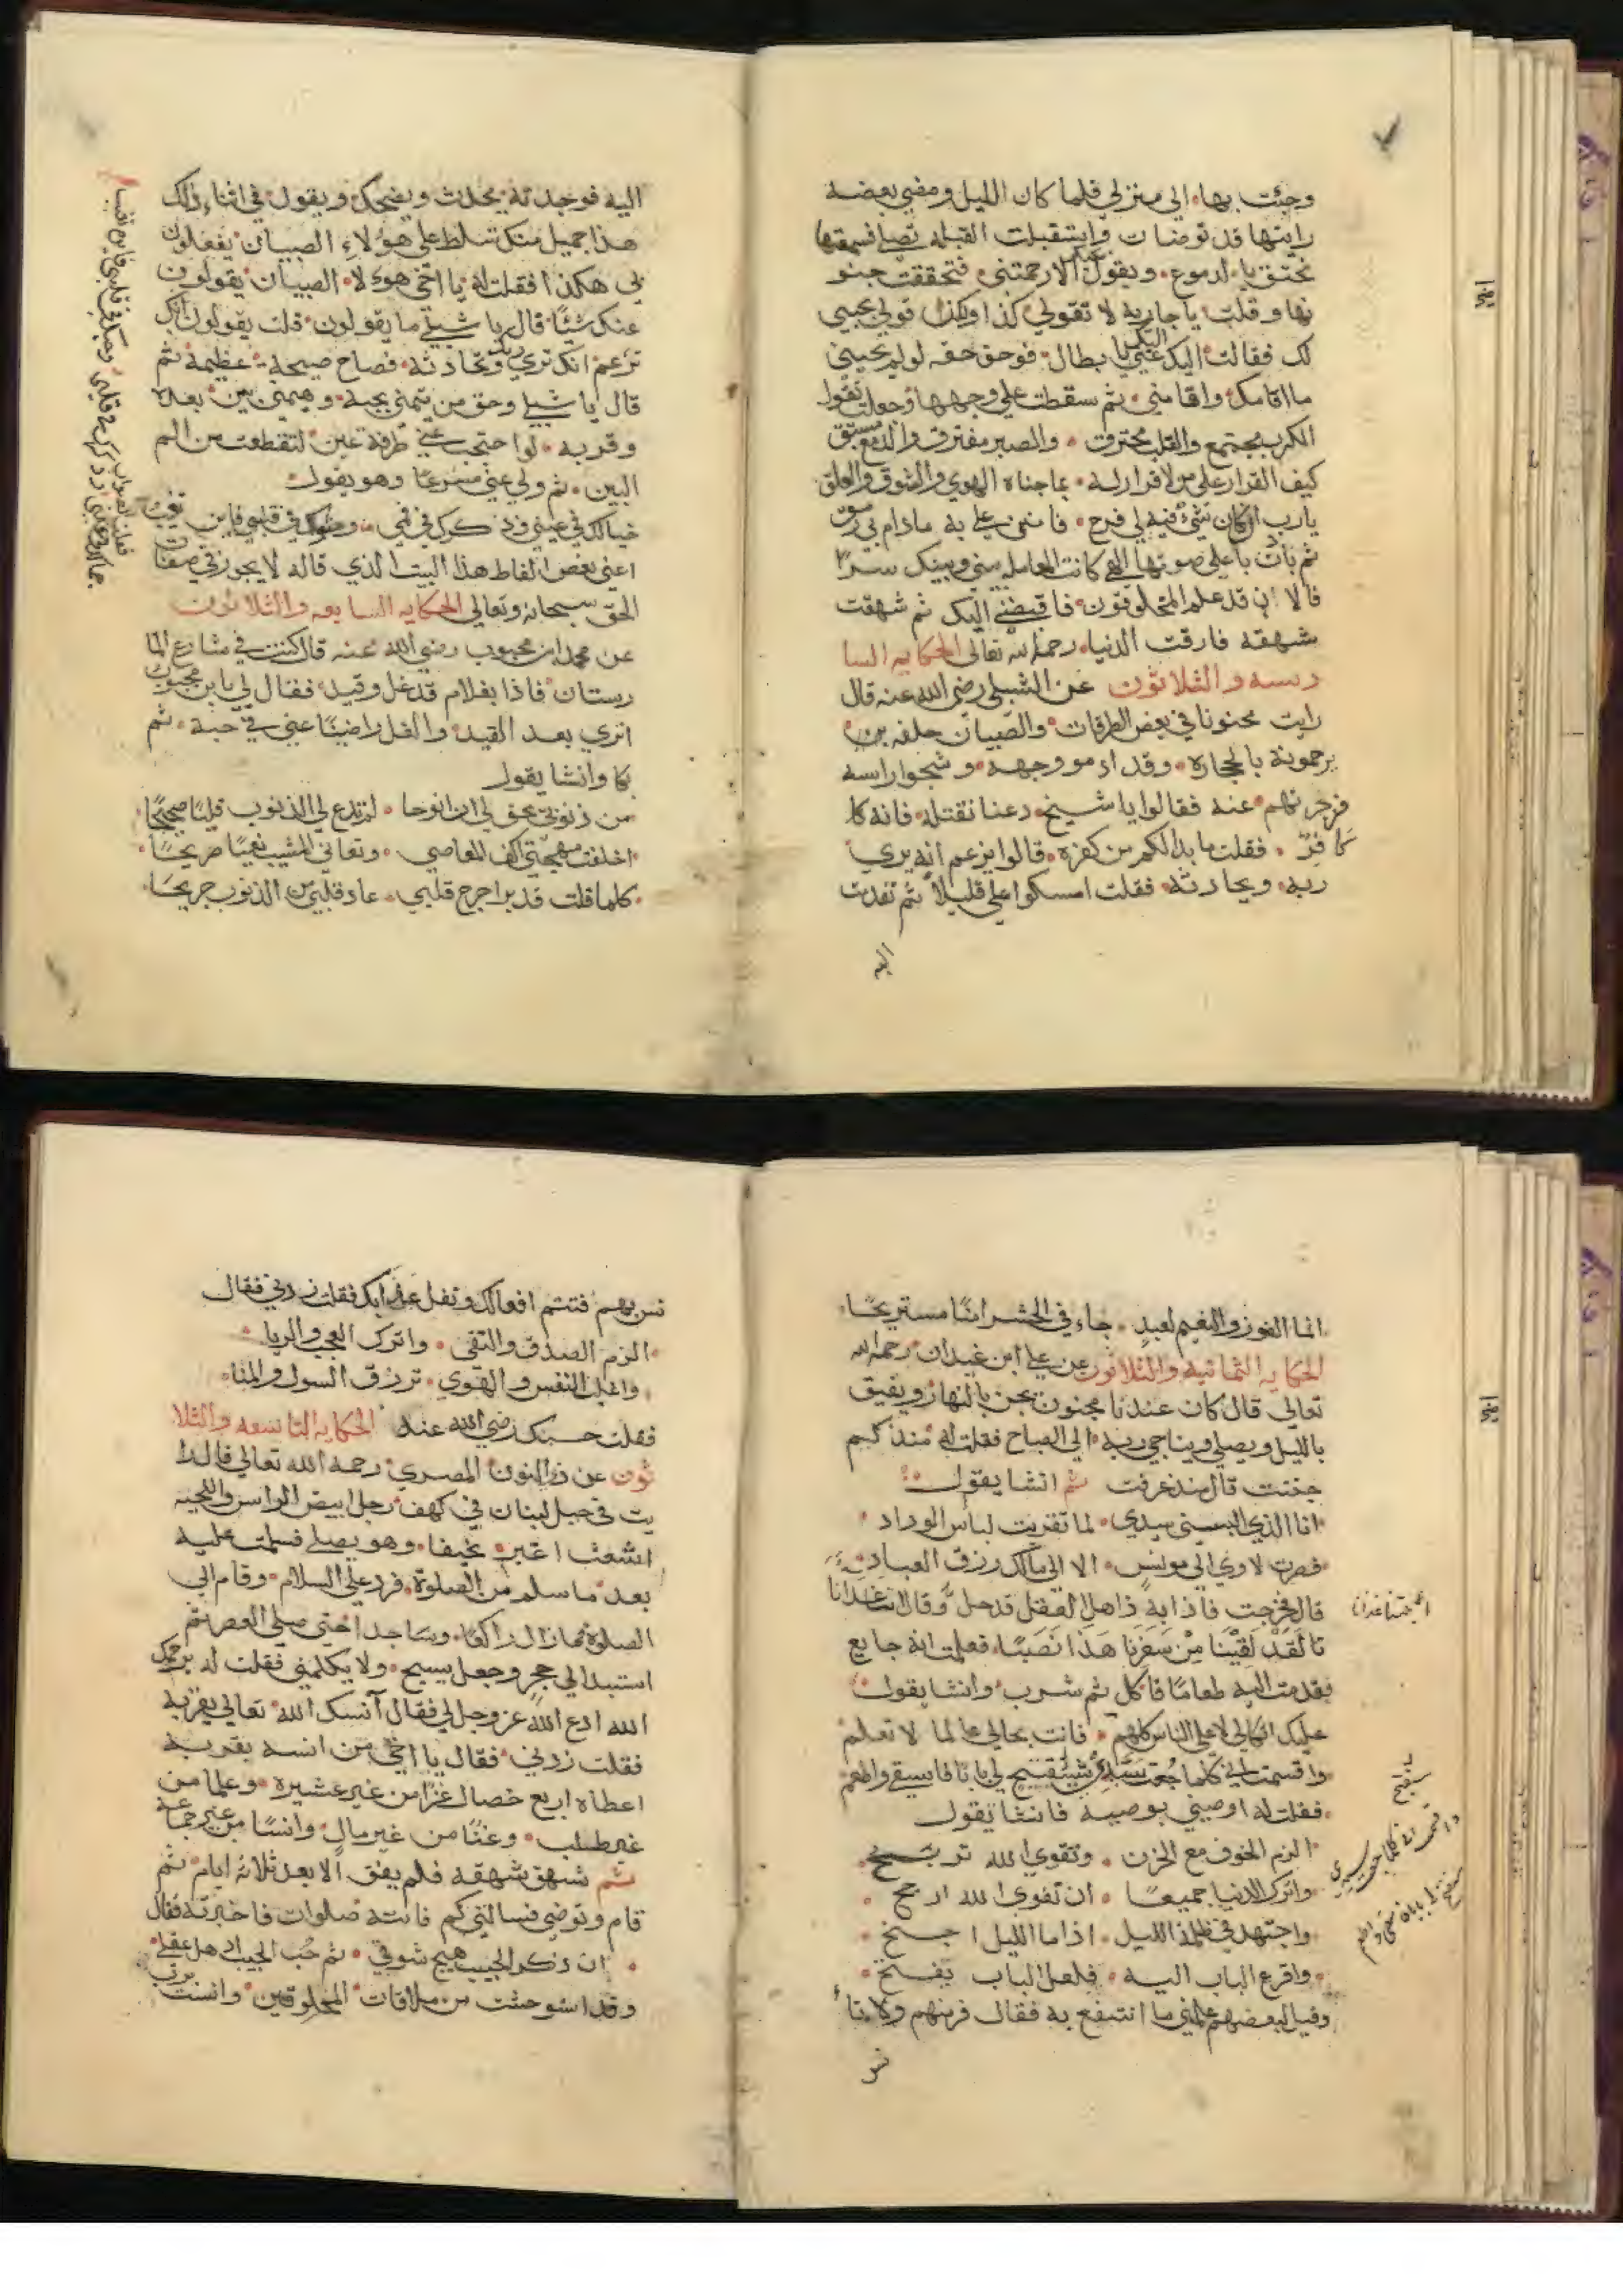 وجئت بها الى منزلي فلما كان الليل ومضي بعضه
رايتها قد توضات واستقبلت القبله تصلي فسمعتها
تختنق بالدموع ويقول الا رحمتني فتحققت جنو
نها وقلت يا جارية لا تقولي كذا ولكن قولي بحبي
لك فقالت اليك عني يا بطال فوحق حقه لو لم يحبني
ما انامك واقامني ثم سقطت علي وجهها وجعلت تقول
الكرب مجتمع والقلب محترق والصبر مفترق والدمع مستبق
كيف القرار علي من لا قرار له مما جناه الهوي والشوق والقلق
يارب ان كان شئ فيه لي فرج فامنن علي به مادام بي رمق
ثم نادت باعلي صوتها الهي كانت المعامله بيني وبينك سرًا
فالاان قد علم المخلوقون فاقبضني اليك ثم شهقت
شهقه فارقت الدنيا رحمها الله تعالى الحكايه السا
دسه والثلاثون عن الشبلي رضي الله عنه قال
رايت مجنونا في بعض الطرقات والصبيان خلفه
يرجمونه بالحجاره وقد ادموا وجهه وشجوا راسه
فزجرتهم عنه فقالوا يا شيخ دعنا نقتله فانه كا
كافر فقلت ما بدا لكم من كفره قالوا يزعم انه يري
ربه ويحادثه فقلت امسكوا علي قليلا ثم تقدمت
اليه
اليه فوجدته يتحدث ويضحك ويقول في اثناء ذلك
هذا جميل منك تسلط علي هؤلاء الصبيان يفعلون
بي هكذا فقلت له يا اخي هوءلا الصبيان يقولون
عنك شيئًا قال يا شبلي ما يقولون قلت يقولون انك
تزعم انك تري ربك وتحادثه فصاح صيحة عظيمة ثم
قال يا شبلي وحق من تيمني بحبه وهيمني بين بعده
وقربه لو احتجب عني طرفة عين لتقطعت من الم
البين ثم ولي عني مسرعًا وهو يقول
خيالك في عيني وذكرك في فمي ومثواك في قلبي فاين تغيب
اعني بعض الفاظ هذا البيت الذي قاله لا يجوز في صفات
الحق سبحانه وتعالي الحكايه السابعه والثلاثون
عن محمد ابن محبوب رضي الله عنه قال كنت في شارع الما
رستان فاذا بغلام قد غل وقيد فقال لي يا بن محبوب
اتري بعد القيد والغل راضيًا عني في حبه ثم
بكا وانشا يقول
من ذنوبي يحق لي ان انوحا لم تدع لي الذنوب قلبًا صحيحًا
اخلقت مهجتي اكف المعاصي ونعاني المشيب نعيًا صريحًا
كلما قلت قد برا جرح قلبي عاد قلبي من الذنوب جريحًا
انما الفوز والنعيم لعبد جاء في الحشر امنًا مستريحًا
الحكايه الثمانيه والثلاثون عن علي ابن عبدان رحمه الله
تعالي قال كان عندنا مجنون يجن بالنهار ويفيق
بالليل ويصلي ويناجي ربه الي الصباح فقلت له منذ كم
جننت قال منذ عرفت ثم انشا يقول
انا الذي البسني سيدي لما تقربت لباس الوداد
فصرت لا اوي الي مونس الا الي مالك رزق العباد
قال فخرجت فاذا به ذاهل العقل قد دخل وقال اتنا غدانا
نا لقد لقينا من سفرنا هذا نصبًا فعلمت انه جايع
فقدمت اليه طعامًا فاكل ثم شرب وانشا يقول
عليك اتكالي لا علي الناس كلهم وانت بحالي عالما لا تعلم
واقسمت اني كلما جعت سيدي ستفتح لي بابا فاسقي واطعم
فقلت له اوصيني بوصيه فانشا يقول
الزم الخوف مع الحزن وتقوي الله تربح
واترك الدنيا جميعًا ان تقوي الله ارجح
واجتهد في ظلمة الليل اذا ما الليل اجنح
واقرع الباب اليه فلعل الباب يفتح
وقيل لبعضهم علمني ما انتفع به فقال فر منهم ولا تا
نس
نس بهم فقلت زدني فقال
الزم الصدق والتقي واترك العجب والريا
واغلب النفس والهوي ترزق السول والمنا
فقلت حسبك رضي الله عنه الحكايه التاسعه والثلا
ثون عن ذو النون المصري رحمه الله تعالي قال را
يت في جبل لبنان في كهف رجل ابيض الراس واللحيه
اشعث اغبر نحيفا وهو يصلي فسلمت عليه
بعد ما سلم من الصلوة فرد علي السلام وقام الي
الصلوة فما زال راكعًا وساجدا حتي صلي العصر ثم
استند الي حجر وجعل يسبح ولا يكلمني فقلت له يرحمك
الله ادع الله عز وجل لي فقال آنسك الله تعالي بقربه
فقلت زدني فقال يا اخي من انسه بقربه
اعطاه اربع خصال عزًا من غير عشيره وعلما من
غير طلب وغنًا من غير مال وانسًا من غير جماعه
ثم شهق شهقه فلم يفق الا بعد ثلاثه ايام ثم
قام وتوضي فسالني كم فاتته صلوات فاخبرته فقال
ان ذكر الحبيب هيج شوقي ثم حب الحبيب اذهل عقلي
وقد استوحشت من ملاقات المخلوقين وانست برب